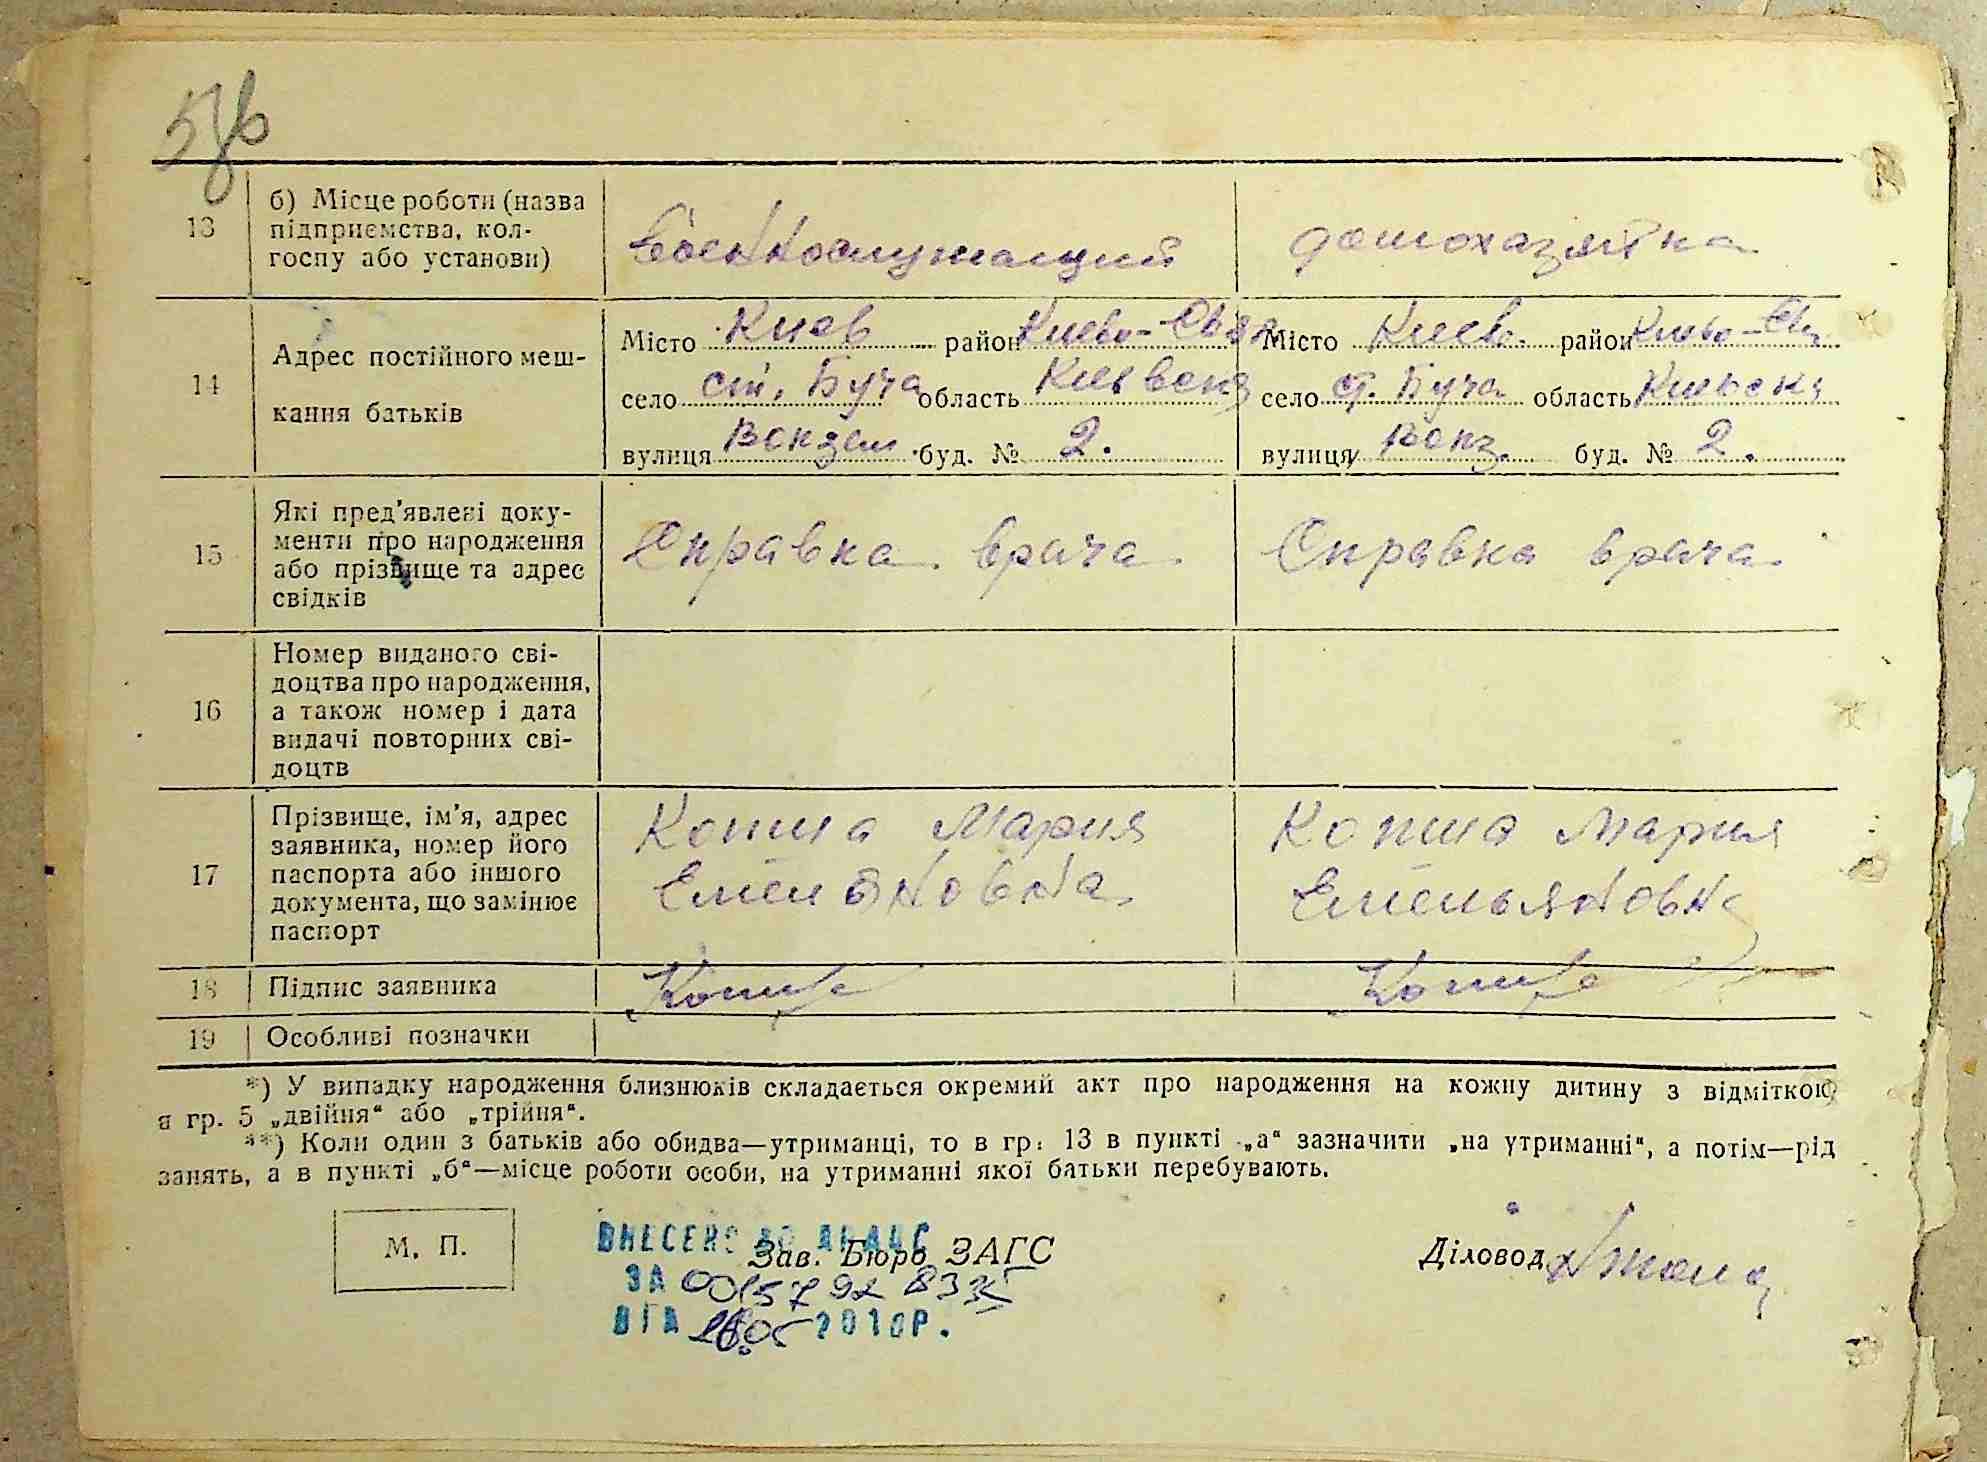 13
б) Місце роботи (назва
підприємства, кол-
госпу або установи)
Военнослужащий
домохазяйка
14
Адрес постійного меш-
кання батьків
Місто Киев район Киево-Свя
село ст. Буча область Киевск
вулиця Вокзал буд. № 2.
Місто Киев. район Киево-Св
село ст. Буча область Киевск
вулиця Вокз. буд. № 2.
15
Які пред'явлені доку-
менти про народження
або прізвище та адрес
свідків
Справка врача
Справка врача
16
Номер виданого сві-
доцтва про народження,
а також номер і дата
видачі повторних сві-
доцтв
17
Прізвище, ім'я, адрес
заявника, номер його
паспорта або іншого
документа, що замінює
паспорт
Мария
Емельяновна
Мария
Емельяновна
18
Підпис заявника
19
Особливі позначки
*) У випадку народження близнюків складається окремий акт про народження на кожну дитину з відміткою
в гр. 5 „двійня“ або „трійня“.
**) Коли один з батьків або обидва—утриманці, то в гр. 13 в пункті „а“ зазначити „на утриманні“, а потім—рід
занять, а в пункті „б“—місце роботи особи, на утриманні якої батьки перебувають.
М. П.
ВНЕСЕНО ДО ДРАЦС
Зав. Бюро ЗАГС
ЗА 0015792 833
ВІД 2010Р.
Діловод